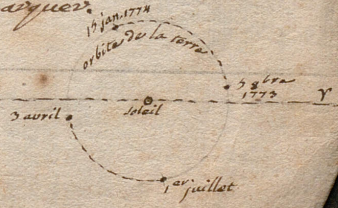 arquer
15 jan. 1774
orbite de la terre
5 8bre
1773
soleil
♈
3 avril
1er juillet